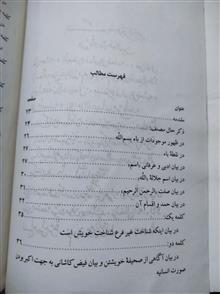 فهرست مطالب
عنوان صفحه
مقدمه ۲۳
ذکر حال مصنف:
در ظهور موجودات از باء بسم‌الله ۲۶
در نقطهٔ باء
در بیان ادبی و عرفانی «اسم» ۲۷
در بیان اسم جلالهٔ «الله»
در بیان صفت «الرحمن الرحیم»
در بیان حمد و اقسام آن
کلمه یک: ۳۵
در بیان اینکه شناخت غیر فرع شناخت خویش است
کلمه دو: ۳۹
در بیان آگاهی از صحیفهٔ خویشتن و بیان فیض کاشانی به جهت اکبر بودن
صورت انسانیه